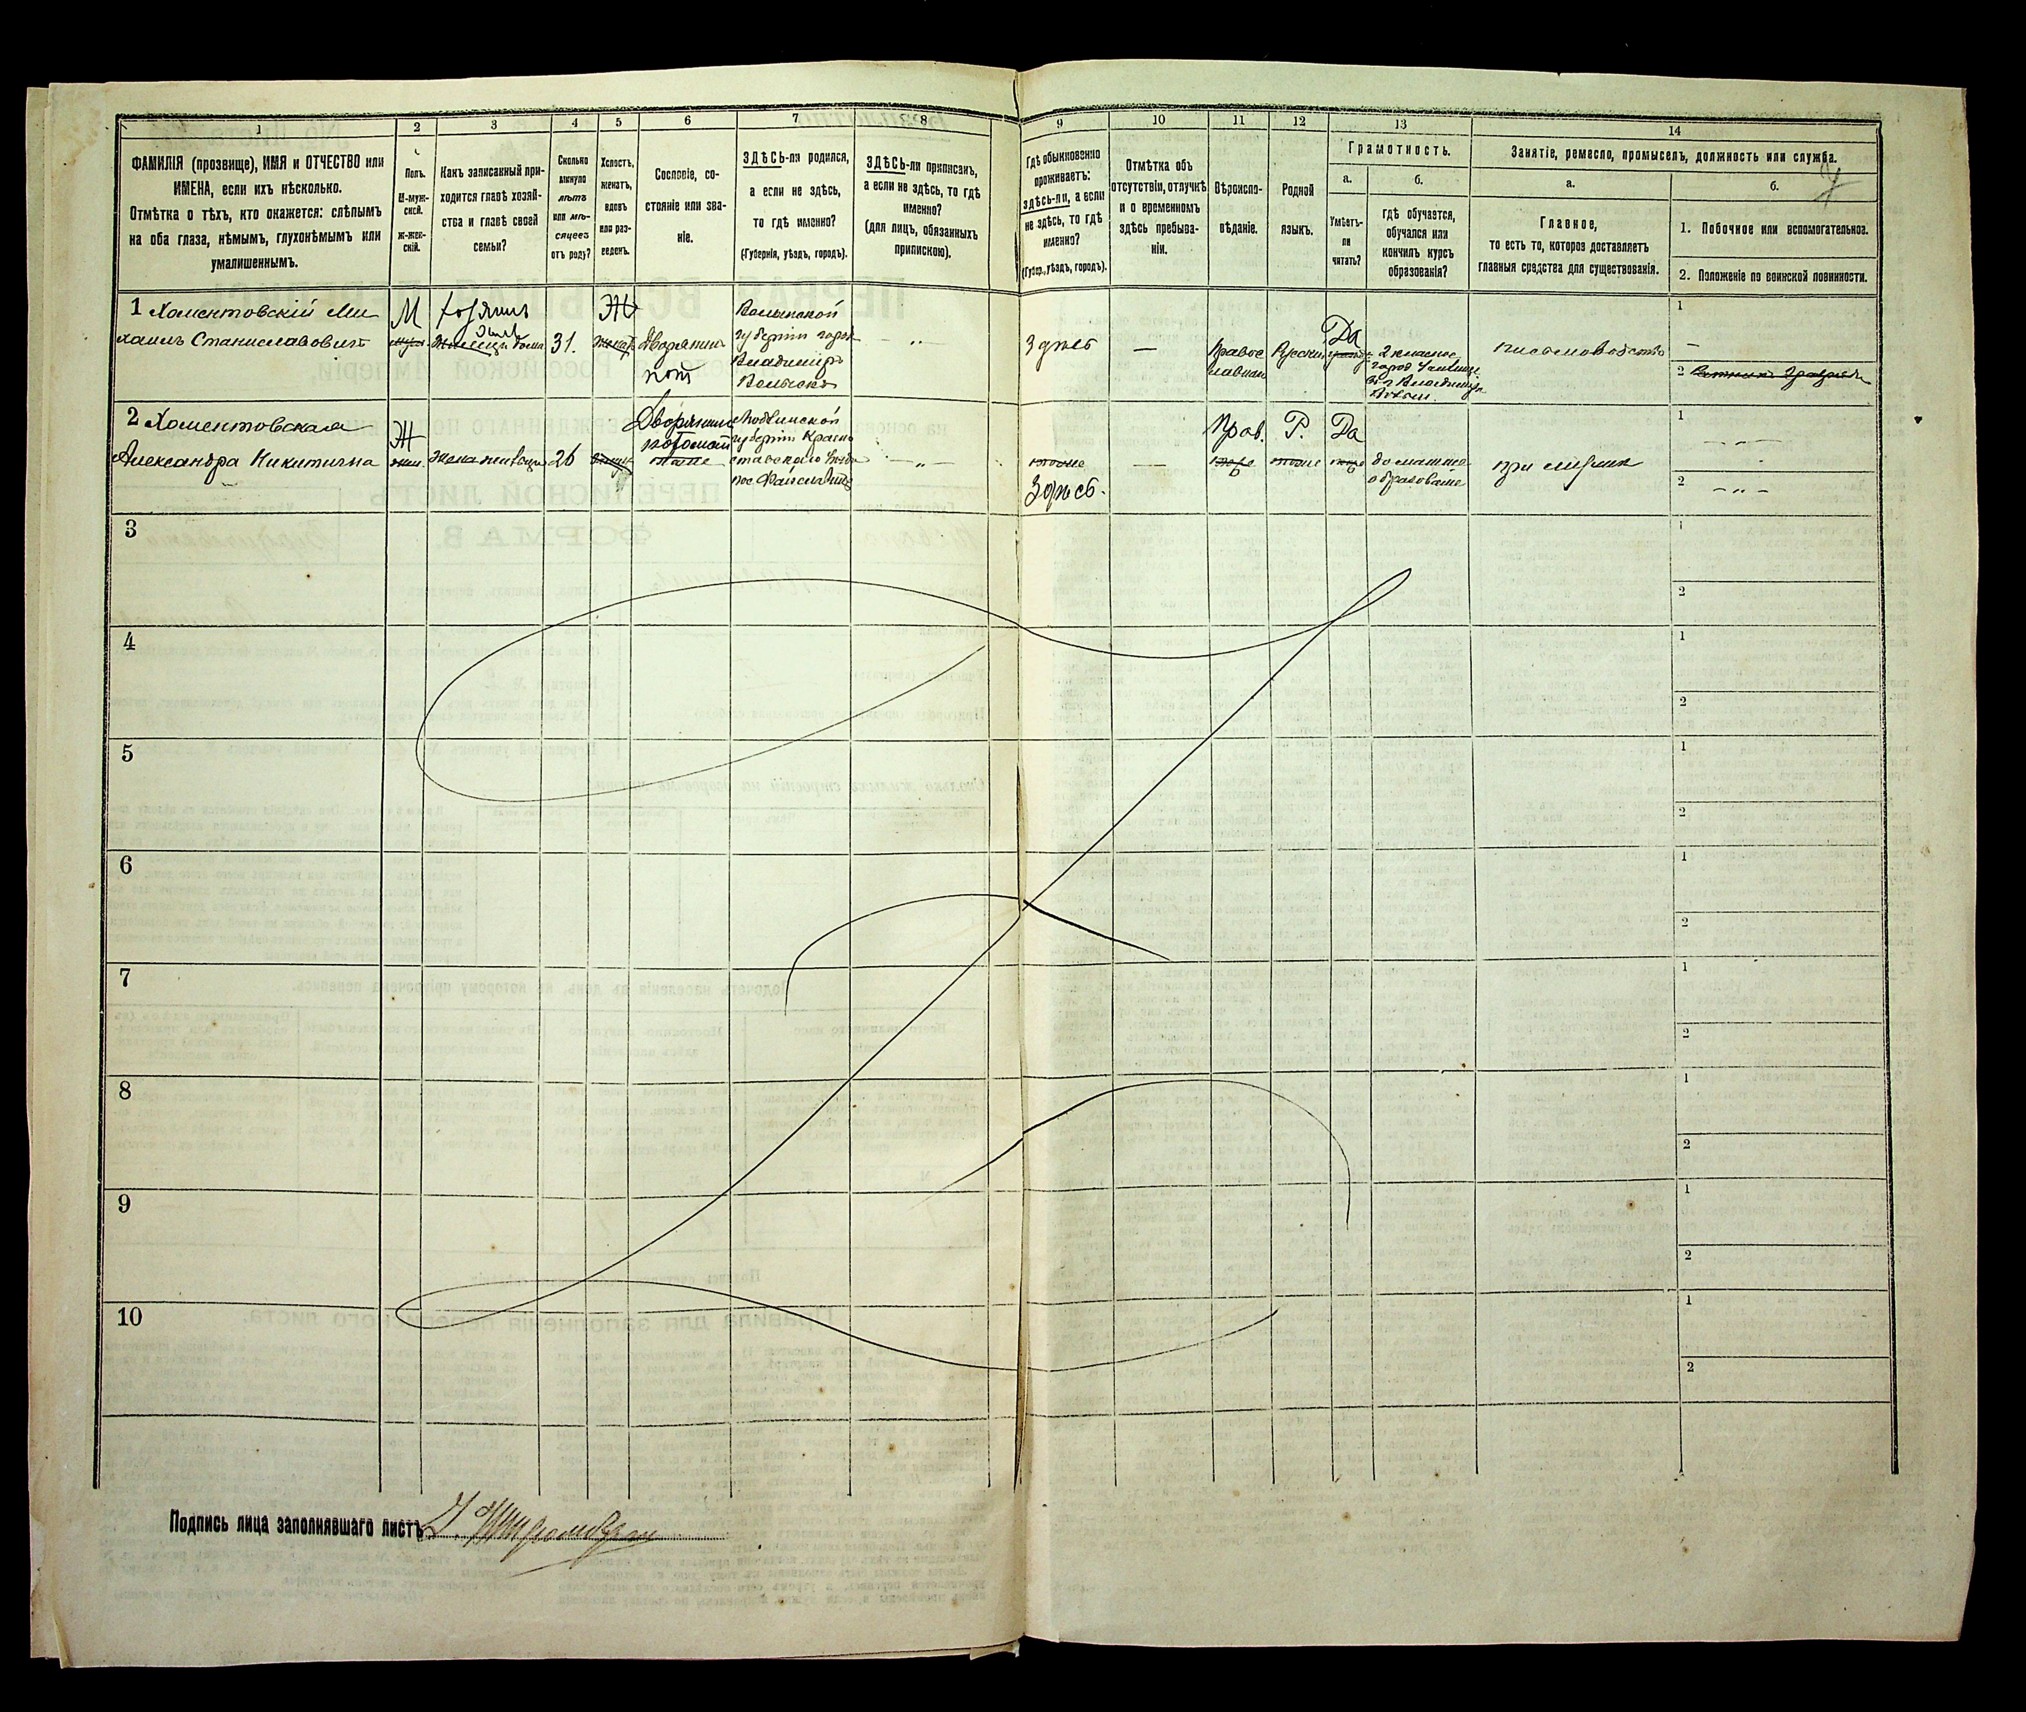 1
2
3
4
5
6
7
8
9
10
11
12
13
14
ФАМИЛІЯ (прозвище), ИМЯ и ОТЧЕСТВО или
ИМЕНА, если ихъ нѣсколько.
Отмѣтка о тѣхъ, кто окажется: слѣпымъ
на оба глаза, нѣмымъ, глухонѣмымъ или
умалишеннымъ.
Полъ.
М-муж-
ской.
Ж-жен-
скій.
Какъ записанный при-
ходится главѣ хозяй-
ства и главѣ своей
семьи?
Сколько
минуло
лѣтъ
или мѣ-
сяцевъ
отъ роду?
Холостъ,
женатъ,
вдовъ
или раз-
веденъ.
Сословіе, со-
стояніе или зва-
ніе.
ЗДѢСЬ-ли родился,
а если не здѣсь,
то гдѣ именно?
(Губернія, уѣздъ, городъ).
ЗДѢСЬ-ли приписанъ,
а если не здѣсь, то гдѣ
именно?
(для лицъ, обязанныхъ
припискою).
Гдѣ обыкновенно
проживаетъ:
здѣсь-ли, а если
не здѣсь, то гдѣ
именно?
(Губер., уѣздъ, городъ).
Отмѣтка объ
отсутствіи, отлучкѣ
и о временномъ
здѣсь пребыва-
ніи.
Вѣроиспо-
вѣданіе.
Родной
языкъ.
Грамотность.
а.
Умѣетъ-
ли
читать?
б.
гдѣ обучается,
обучался или
кончилъ курсъ
образованія?
Занятіе, ремесло, промыселъ, должность или служба.
а.
Главное,
то есть то, которое доставляетъ
главныя средства для существованія.
б.
1. Побочное или вспомогательное.
2. Положеніе по воинской повинности.
1 Хоментовскій Ми
хаилъ Станиславович
М
хозяинъ
дома
31.
Ж
Дворянин
пот
Волынской
губерніи город
Владимиръ
Волынскъ
Здѣсь
—
Право
славная
Русскій
Да
2 класное
город Училище
в г Владимірѣ
Волын.
письмоводство
1
—
2
2 Хоментовская
Александра Никитична
Ж
жена
26
Дворянин
потомст
Люблинской
губерніи Красно
ставского уѣзда
пос.
тоже
Здѣсь.
—
Прав.
Р.
Да
домашнее
образованіе
при мужѣ
1
2
3
1
2
4
1
2
5
1
2
6
1
2
7
1
2
8
1
2
9
1
2
10
1
2
Подпись лица заполнявшаго листъ